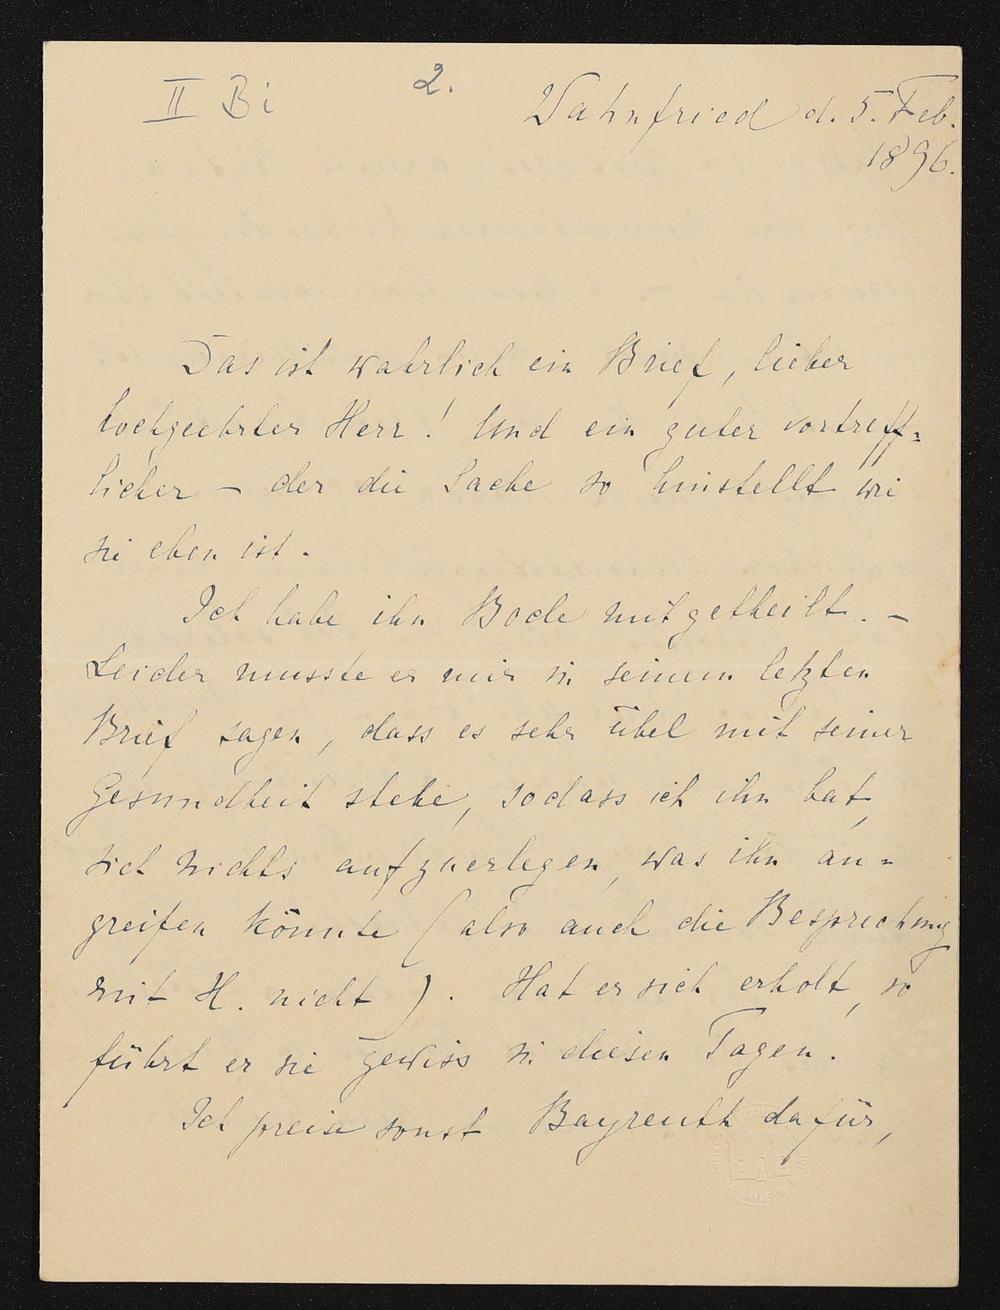 II Bi 2. Wahnfried d. 5. Feb.
1896.
Das ist wahrlich ein Brief, lieber
hochgeehrter Herr! Und ein guter vortreff=
licher – der die Sache so hinstellt wie
sie eben ist.
Ich habe ihn Bode mitgetheilt. –
Leider musste er mir in seinem letzten
Brief sagen, dass es sehr übel mit seiner
Gesundheit stehe, sodass ich ihn bat,
sich nichts aufzuerlegen, was ihn an=
greifen könnte (also auch die Besprechung
mit H. nicht). Hat er sich erholt, so
führt er sie gewiss in diesen Tagen.
Ich preise sonst Bayreuth dafür,